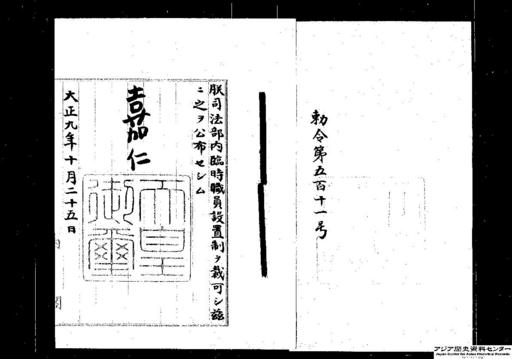 勅令第五百十一号
朕司法部内臨時職員設置制ヲ裁可シ茲
ニ之ヲ公布セシム
嘉仁
天皇御璽
大正九年十月二十五日
アジア歴史資料センター
Japan Center for Asian Historical Records